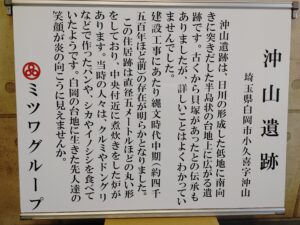 沖山遺跡
埼玉県白岡市小久喜字沖山
沖山遺跡は、日川の形成した低地に南向
きに突きだした半島状の台地上に広がる遺
跡です。古くから貝塚があったとの伝承も
ありましたが、詳しいことはよくわかってい
ませんでした。
建設工事にあたり縄文時代中期(約四千
五百年ほど前)の存在が明らかとなりました。
この住居跡は直径五メートルほどの丸い形
をしており、中央付近に煮炊きをした炉が
あります。当時の人々は、クルミやドングリ
などで作ったパンや、シカやイノシシを食べて
いたようです。白岡の台地に生きた先人達の
笑顔が炎の向こうに見えませんか。
ミツワグループ